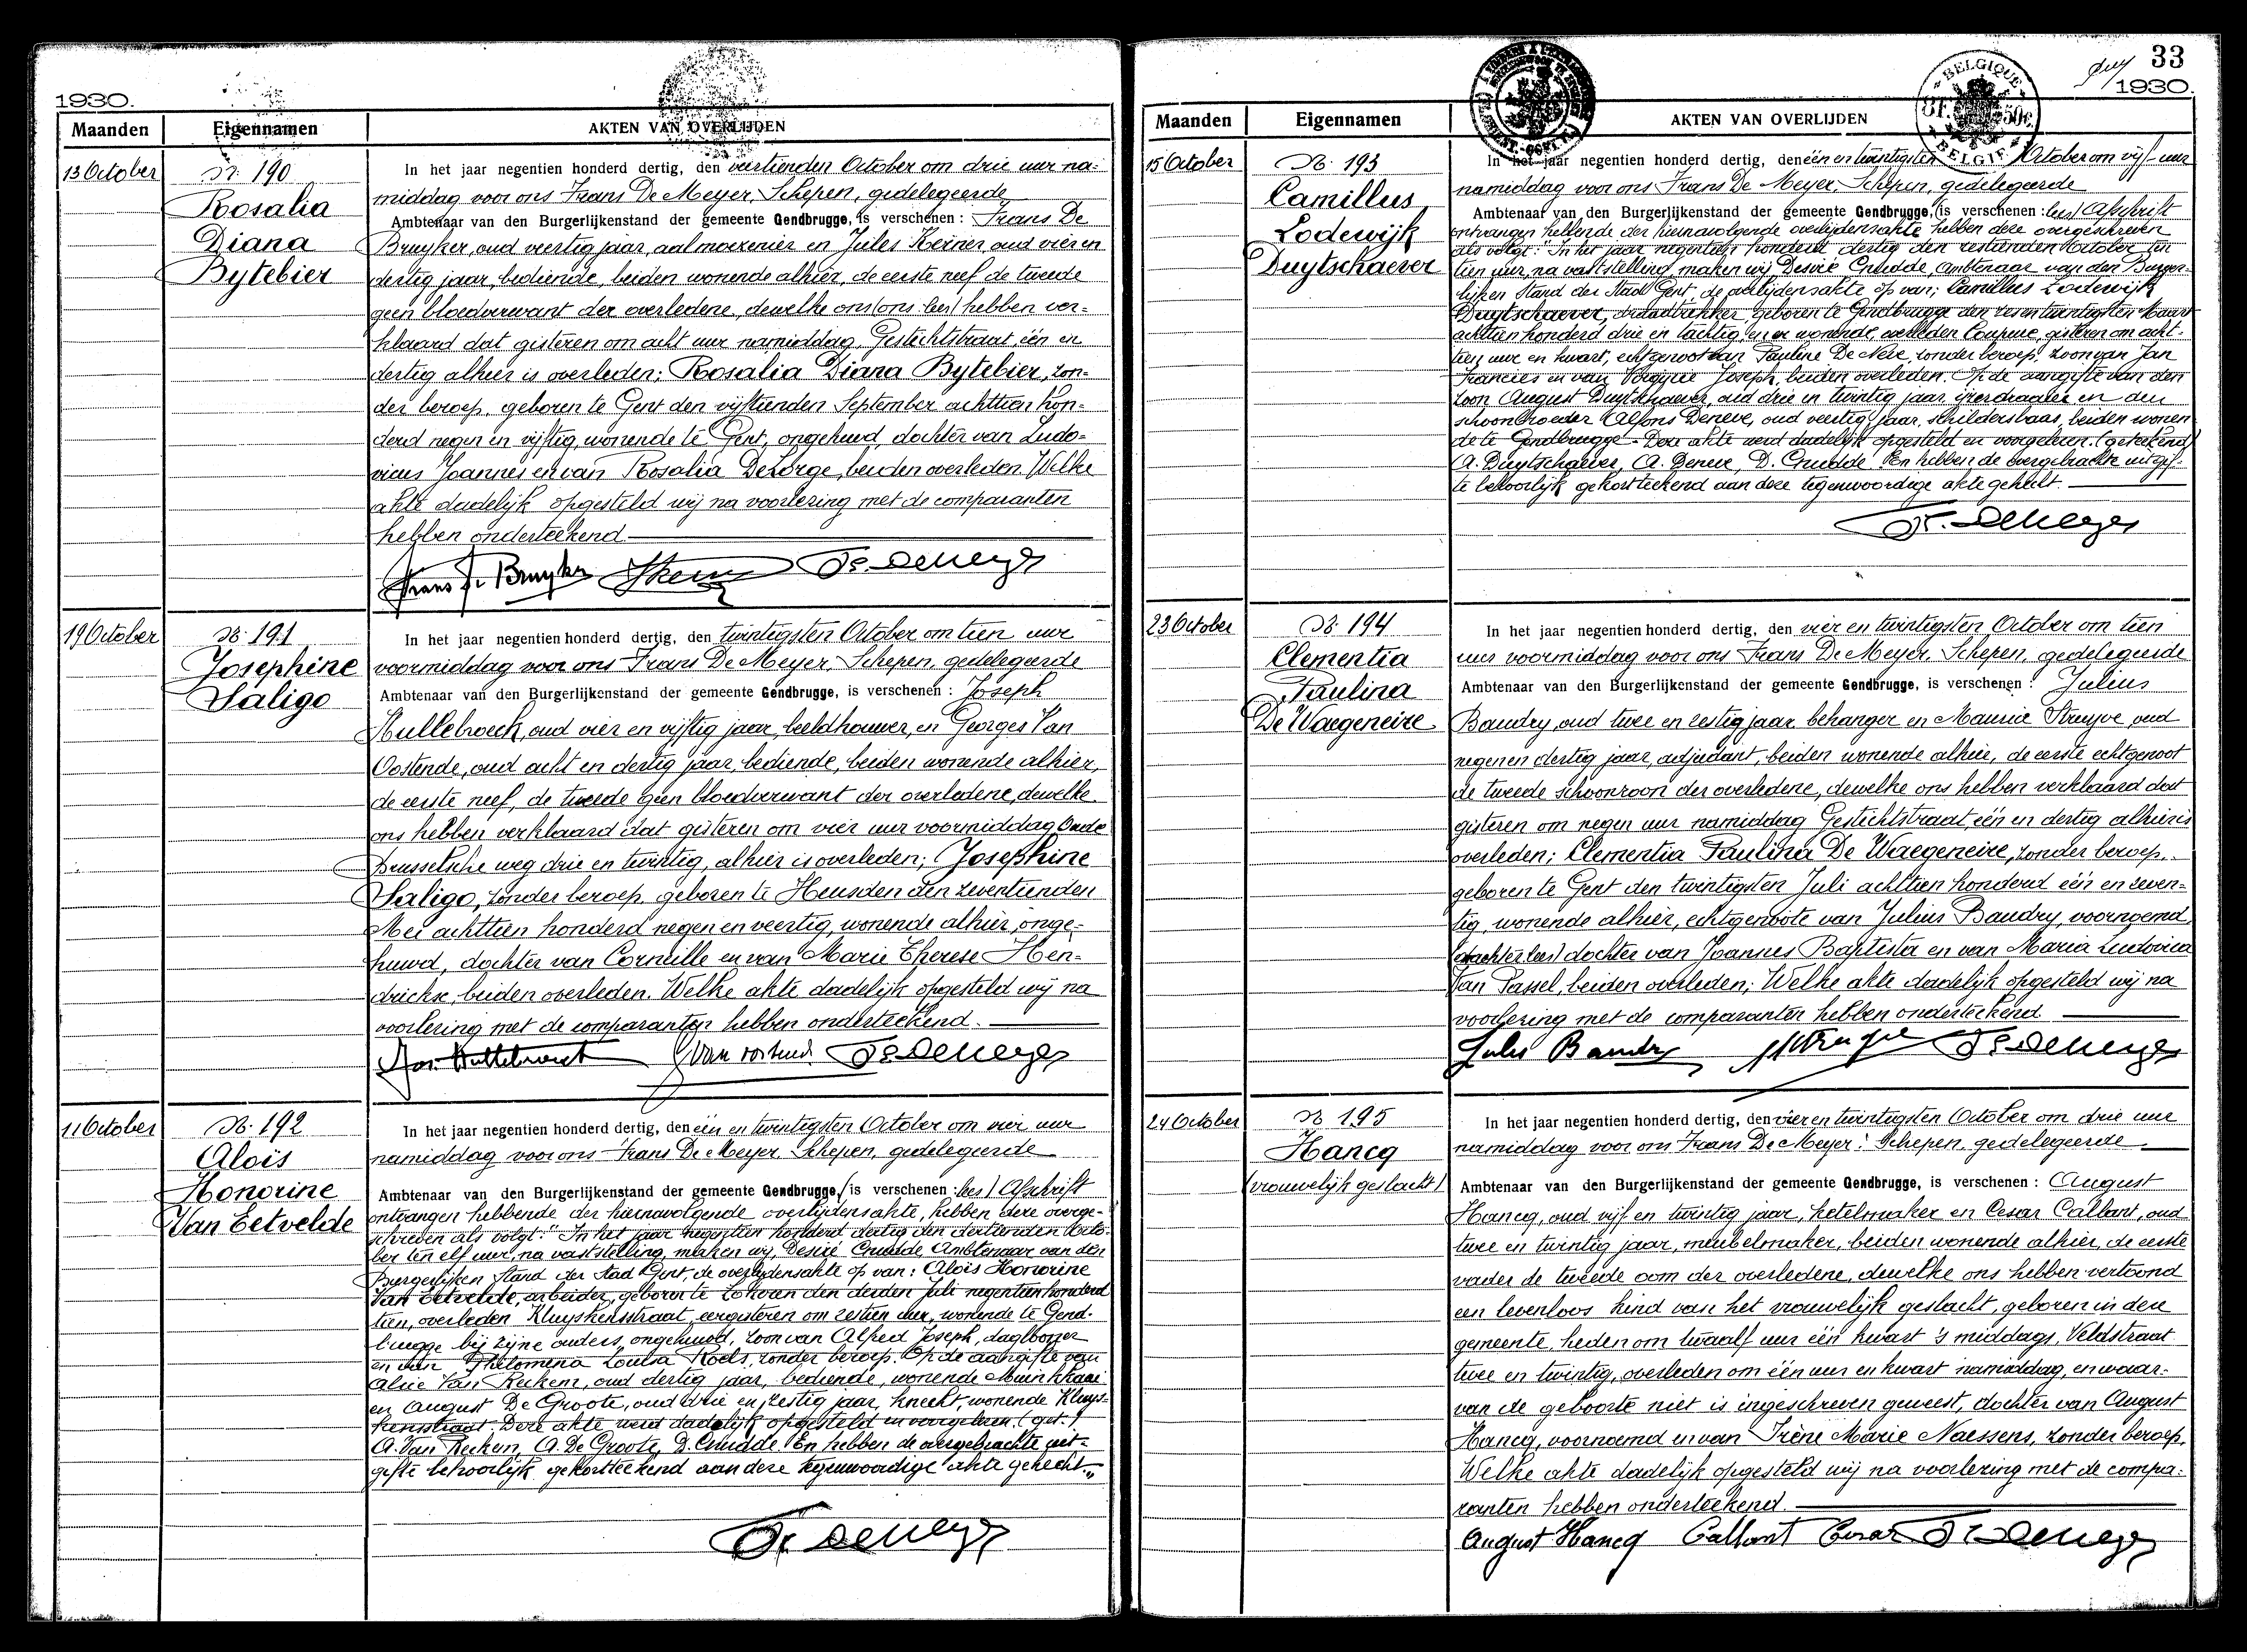 1930.
Maanden Eigennamen AKTEN VAN OVERLIJDEN
13 October
Nr. 190
Rosalia
Diana
Bytebier
In het jaar negentien honderd dertig, den veertienden October om drie uur na=
middag voor ons Frans De Meyer, Schepen, gedelegeerde
Ambtenaar van den Burgerlijkenstand der gemeente Gendbrugge, is verschenen: Frans De
Bruyker, oud veertig jaar, aalmoezenier en Jules Keiner oud vier en
dertig jaar, bediende, beiden wonende alhier, de eerste neef de tweede
geen bloedverwant der overledene, dewelke ons (ons lees) hebben ver=
klaard dat gisteren om acht uur namiddag, Gestichtstraat één en
dertig alhier is overleden; Rosalia Diana Bytebier, zon=
der beroep, geboren te Gent den vijftienden September achttien hon=
derd negen en vijftig, wonende te Gent, ongehuwd, dochter van Ludo=
vicus Joannes en van Rosalia Delorge, beiden overleden. Welke
akte dadelijk opgesteld wij na voorlezing met de comparanten
hebben onderteekend.
Frans De Bruyker Fr. De Meyer
19 October
Nr. 191
Josephine
Saligo
In het jaar negentien honderd dertig, den twintigsten October om tien uur
voormiddag voor ons Frans De Meyer, Schepen, gedelegeerde
Ambtenaar van den Burgerlijkenstand der gemeente Gendbrugge, is verschenen: Joseph
Hullebroeck, oud vier en vijftig jaar, beeldhouwer, en Georges Van
Oostende, oud acht en dertig jaar, bediende, beiden wonende alhier,
de eerste neef, de tweede geen bloedverwant der overledene, dewelke
ons hebben verklaard dat gisteren om vier uur voormiddag Oude
Brusselsche weg drie en twintig, alhier is overleden; Josephine
Saligo, zonder beroep, geboren te Heusden den zeventienden
Mei achttien honderd negen en veertig, wonende alhier, onge=
huwd, dochter van Corneille en van Marie Therese Hen=
drickx, beiden overleden. Welke akte dadelijk opgesteld wij na
voorlezing met de comparanten hebben onderteekend.
Jos. Hullebroeck G Van Oostende Fr. De Meyer
11 October
Nr. 192
Aloïs
Honorine
Van Eetvelde
In het jaar negentien honderd dertig, den één en twintigsten October om vier uur
namiddag voor ons Frans De Meyer Schepen, gedelegeerde
Ambtenaar van den Burgerlijkenstand der gemeente Gendbrugge, (is verschenen: lees) Afschrift
ontvangen hebbende der hiernavolgende overlijdensakte, hebben deze overge=
schreven als volgt: "In het jaar negentien honderd dertig den dertienden Octo=
ber ten elf uur, na vaststelling, maken wij, Desiré Cnudde, Ambtenaar van den
Burgerlijken Stand der Stad Gent, de overlijdensakte op van: Aloïs Honorine
Van Eetvelde, arbeider, geboren te Lokeren den derden Juli negentien honderd
tien, overleden Kluyskensstraat, eergisteren om zestien uur, wonende te Gend=
brugge bij zijne ouders, ongehuwd, zoon van Alfred Joseph, daglooner
en van Philomena Louisa Roels, zonder beroep. Op de aangifte van
Alice Van Reckem, oud dertig jaar, bediende, wonende Muinkkaai
en August De Groote, oud drie en zestig jaar, knecht, wonende Kluys=
kensstraat. Deze akte werd dadelijk opgesteld en voorgelezen. (get.)
A. Van Reckem, A. De Groote, D. Cnudde. En hebben de overgebrachte uit=
gifte behoorlijk gekortteekend aan deze tegenwoordige akte gehecht."
Fr. De Meyer
33
1930.
BELGIQUE
3F. 50c.
BELGIE
Maanden Eigennamen AKTEN VAN OVERLIJDEN
15 October
Nr. 193
Camillus
Lodewijk
Duytschaever
In het jaar negentien honderd dertig, den één en twintigsten October om vijf uur
namiddag voor ons Frans De Meyer, Schepen, gedelegeerde
Ambtenaar van den Burgerlijkenstand der gemeente Gendbrugge, (is verschenen: lees) Afschrift
ontvangen hebbende der hiernavolgende overlijdensakte hebben deze overgeschreven
als volgt: "In het jaar negentien honderd dertig den zestienden October ten
tien uur, na vaststelling, maken wij, Desiré Cnudde, Ambtenaar van den Burger=
lijken Stand der Stad Gent, de overlijdensakte op van; Camillus Lodewijk
Duytschaever, draadtrekker, geboren te Gendbrugge den zes en twintigsten Maart
achttien honderd drie en tachtig, en er wonende, overleden Coupure, gisteren om acht=
tien uur en kwart, echtgenoot van Pauline De Neve, zonder beroep, zoon van Jan
Francies en van Virginie Joseph, beiden overleden. Op de aangifte van den
zoon August Duytschaever, oud drie en twintig jaar, ijzerdraaier en den
schoonbroeder Alfons Deneve, oud veertig jaar, schildersbaas, beiden wonen
de te Gendbrugge. Deze akte werd dadelijk opgesteld en voorgelezen. (geteekend)
A. Duytschaever, A. Deneve, D. Cnudde. En hebben de overgebrachte uitgif=
te behoorlijk gekortteekend aan deze tegenwoordige akte gehecht.
Fr. De Meyer
23 October
Nr. 194
Clementia
Paulina
De Waegeneire
In het jaar negentien honderd dertig, den vier en twintigsten October om tien
uur voormiddag voor ons Frans De Meyer, Schepen, gedelegeerde
Ambtenaar van den Burgerlijkenstand der gemeente Gendbrugge, is verschenen: Julius
Baudry, oud twee en zestig jaar, behanger en Maurice Struyve, oud
negen en dertig jaar, adjudant, beiden wonende alhier, de eerste echtgenoot
de tweede schoonzoon der overledene, dewelke ons hebben verklaard dat
gisteren om negen uur namiddag Gestichtstraat, één en dertig alhier is
overleden; Clementia Paulina De Waegeneire, zonder beroep,
geboren te Gent den twintigsten Juli achttien honderd één en zeven=
tig, wonende alhier, echtgenoote van Julius Baudry, voornoemd,
(dachter lees) dochter van Joannes Baptista en van Maria Ludovica
Van Tassel, beiden overleden; Welke akte dadelijk opgesteld wij na
voorlezing met de comparanten hebben onderteekend
Jules Baudry MStruyve Fr. De Meyer
24 October
Nr 195
Hancq
(vrouwelijk geslacht)
In het jaar negentien honderd dertig, den vier en twintigsten October om drie uur
namiddag voor ons Frans De Meyer, Schepen, gedelegeerde
Ambtenaar van den Burgerlijkenstand der gemeente Gendbrugge, is verschenen: August
Hancq, oud vijf en twintig jaar, ketelmaker en Cesar Callant, oud
twee en twintig jaar, meubelmaker, beiden wonende alhier, de eerste
vader de tweede oom der overledene, dewelke ons hebben vertoond
een levenloos kind van het vrouwelijk geslacht, geboren in deze
gemeente, heden om twaalf uur één kwart 's middags, Veldstraat
twee en twintig, overleden om één uur en kwart namiddag, en waar=
van de geboorte niet is ingeschreven geweest, dochter van August
Hancq, voornoemd en van Irène Marie Naessens, zonder beroep.
Welke akte dadelijk opgesteld wij na voorlezing met de compa=
ranten hebben onderteekend.
August Hancq Callant Cesar Fr. De Meyer